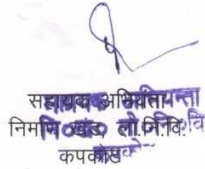 सहायक अभियन्ता
निर्माण खंड, लो.नि.वि.
कपकोट